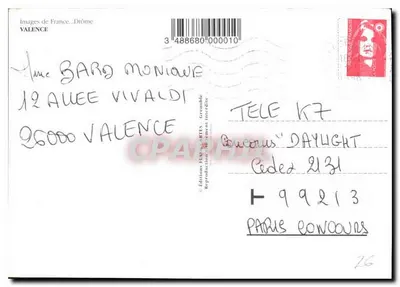 Images de France...Drôme
VALENCE
3 488680 000010
Mme BARD MONIQUE
12 ALLEE VIVALDI
26000 VALENCE
TELE K7
Concours "DAYLIGHT
Cedex 2131
T 99213
PARIS CONCOURS
CPAPHIL
26